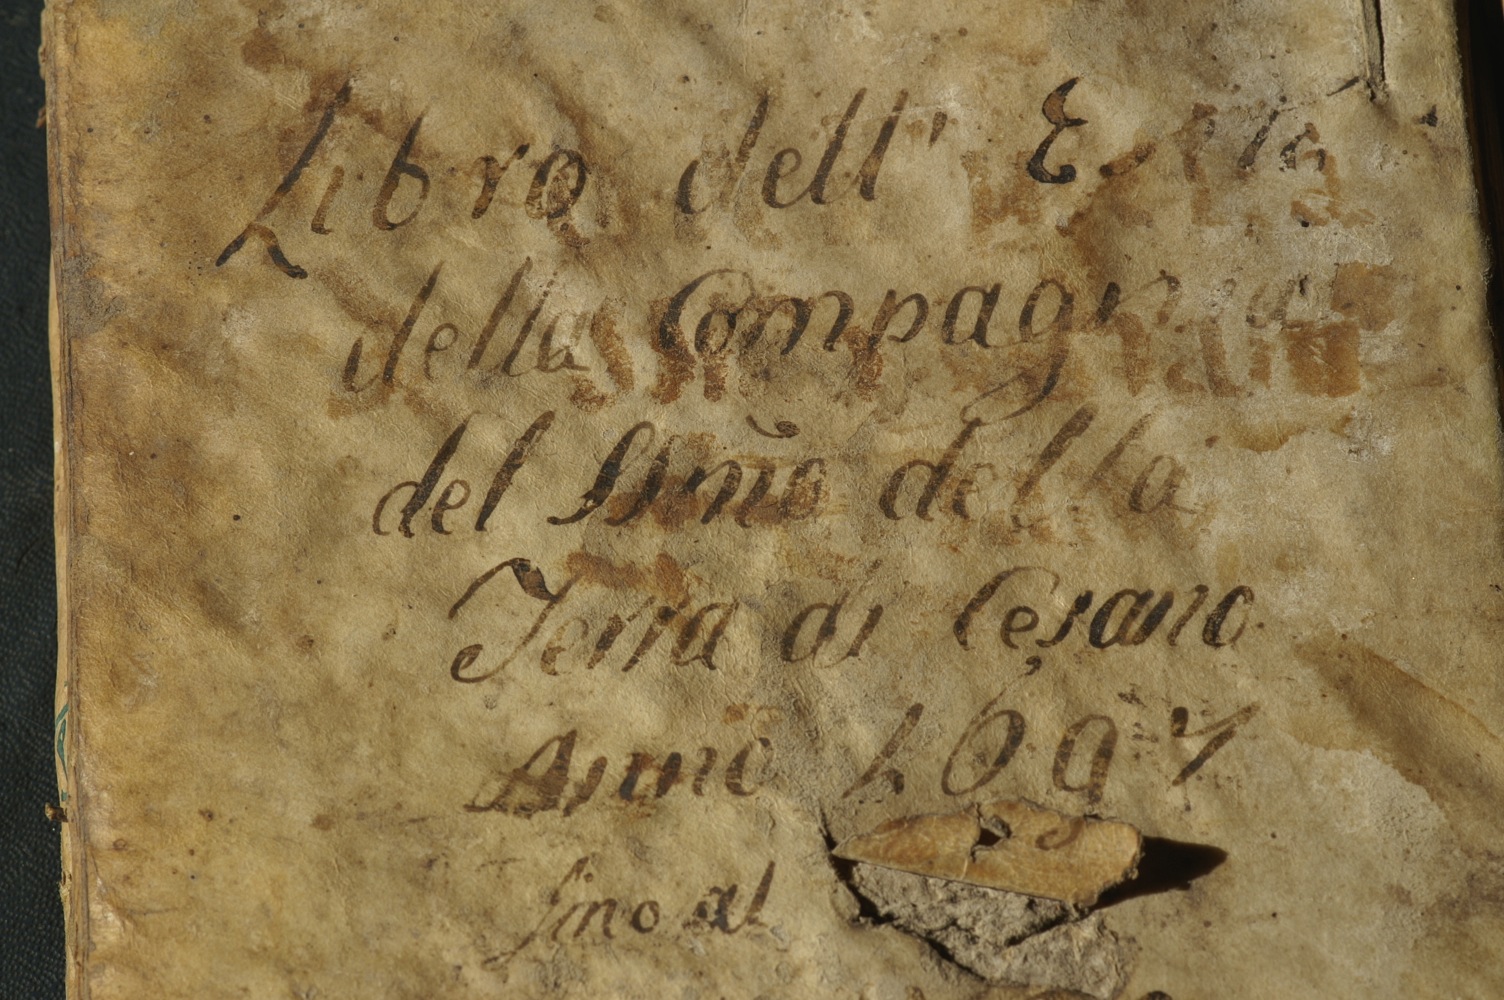 Libro dell'
della Compagnia
del SSmo della
Terra di Cesano
Anno 1697
sino al